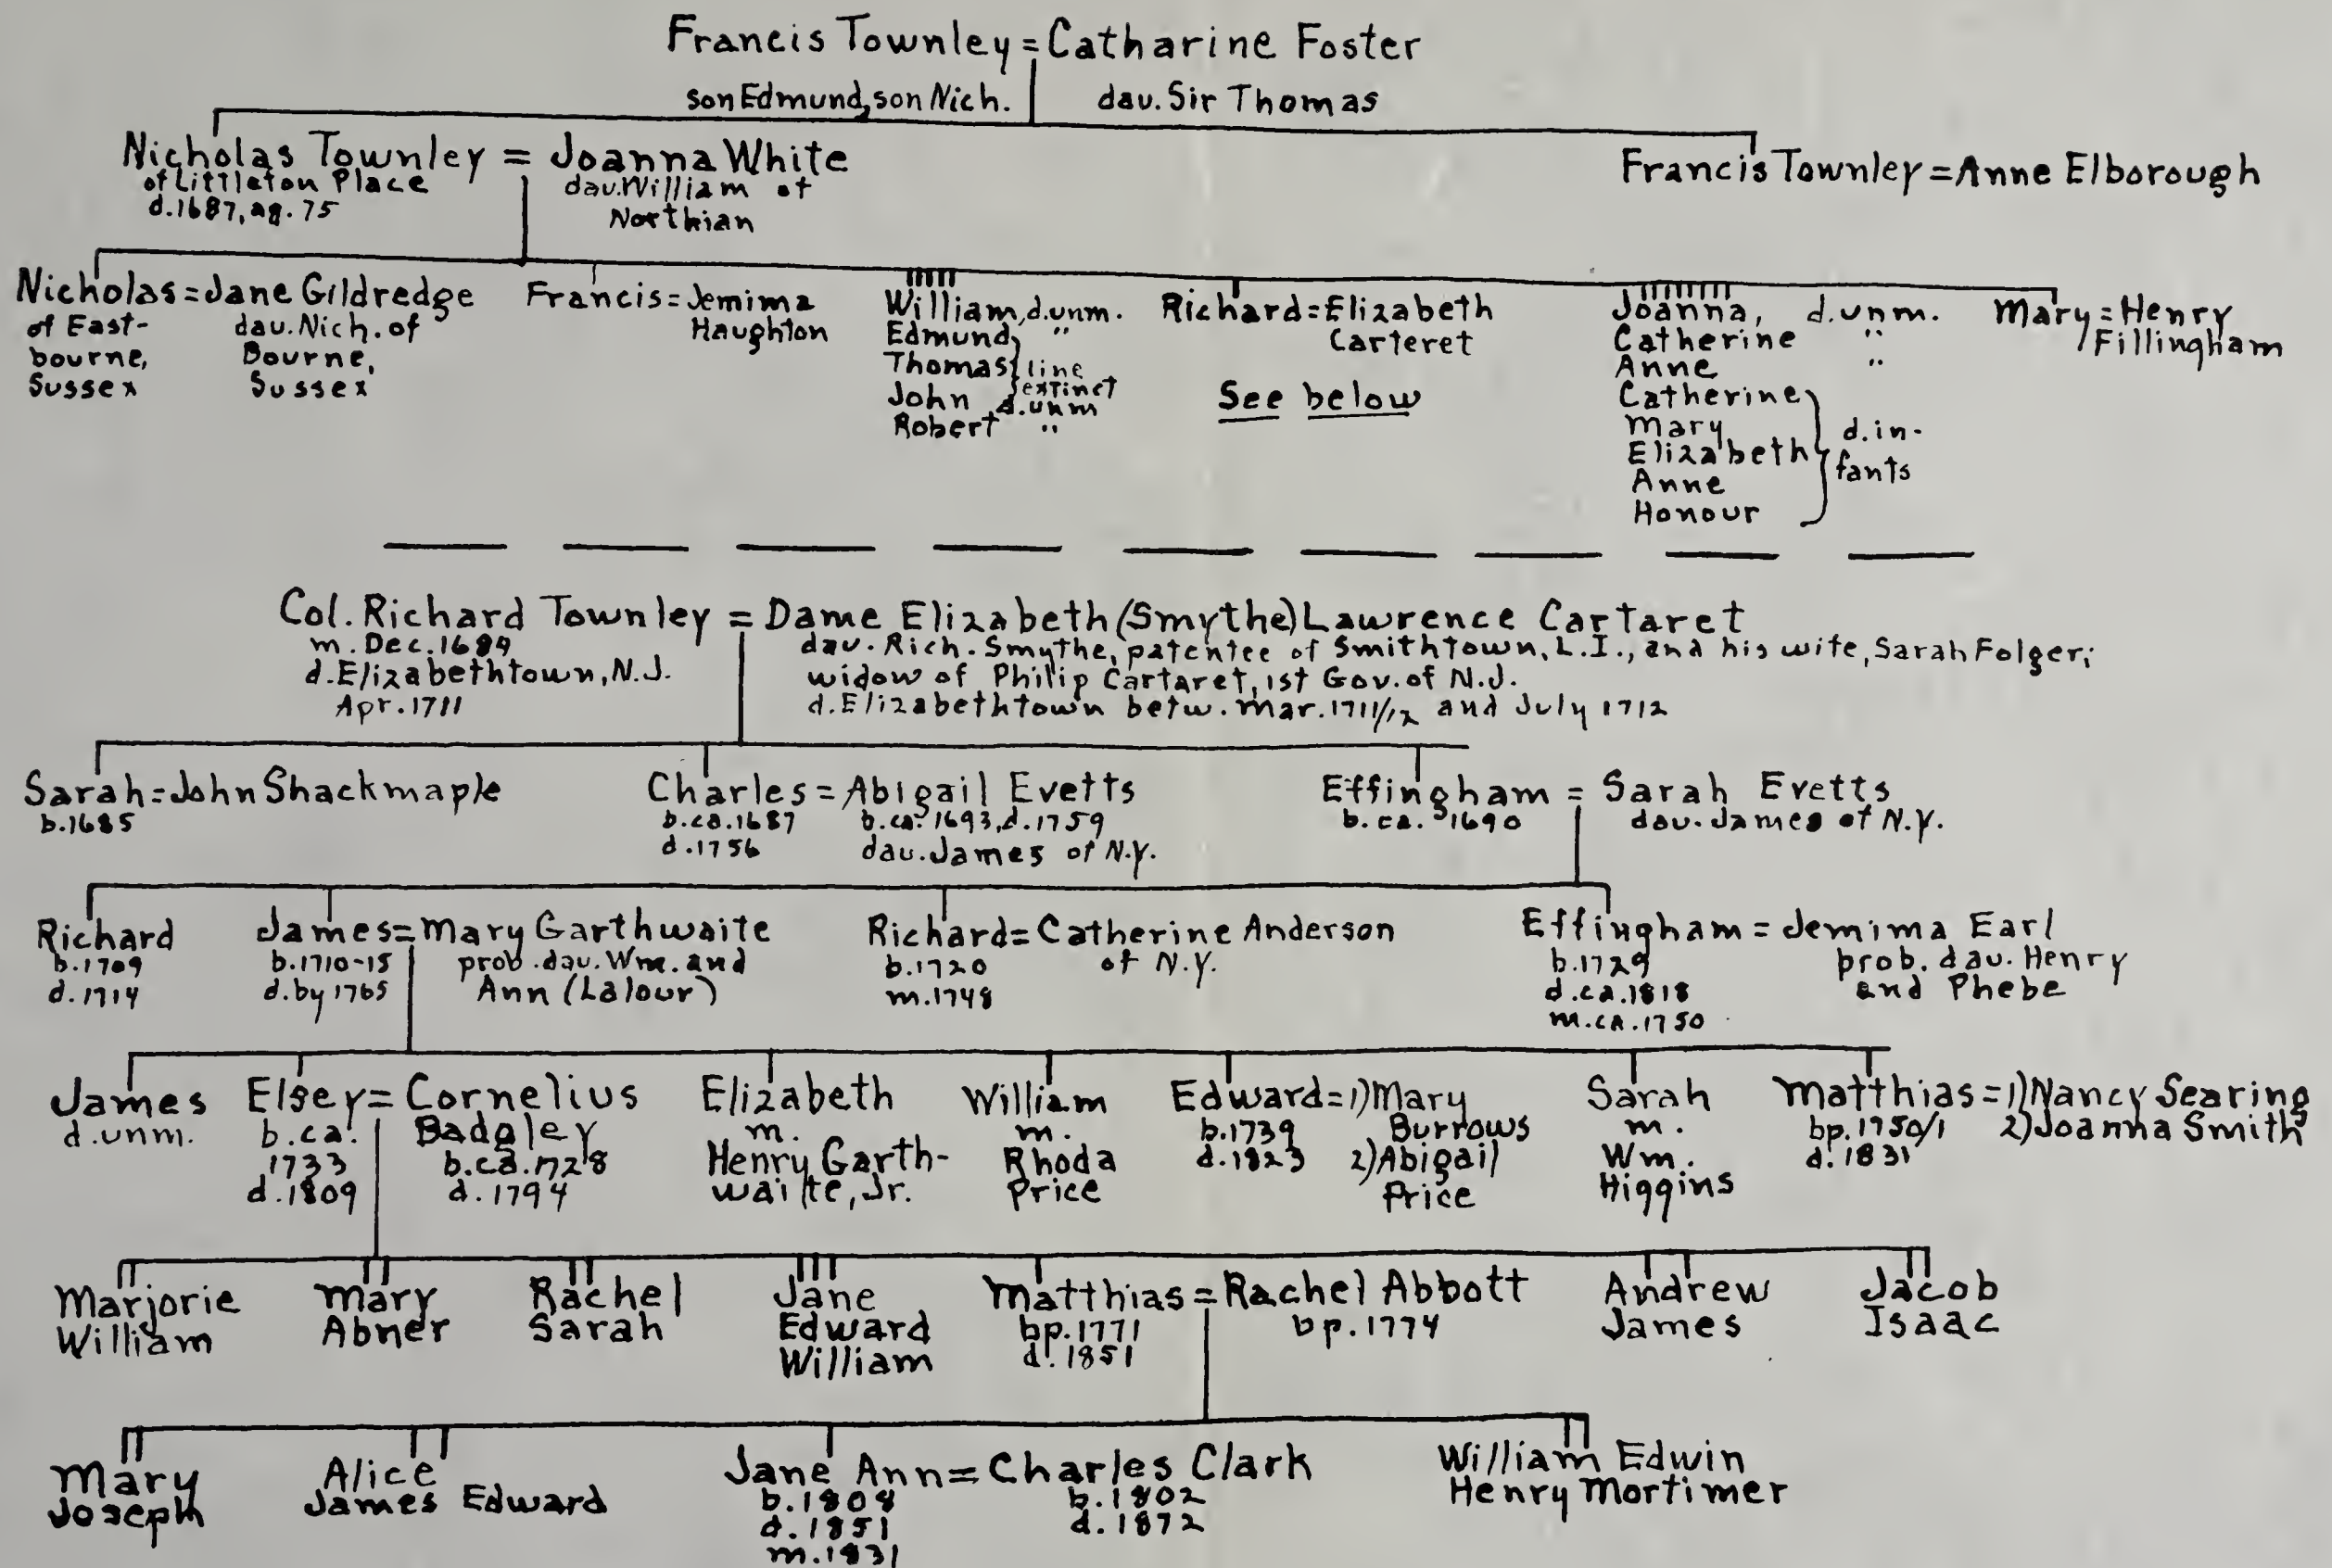 Francis Townley = Catharine Foster
son Edmund, son Nich. dav. Sir Thomas
Nicholas Townley = Joanna White
of Littleton Place
d.1687, ag. 75
dav. William of
Northian
Francis Townley = Anne Elborough
Nicholas = Jane Gildredge
of East-
bourne,
Sussex
dau. Nich. of
Bourne,
Sussex
Francis = Jemima
Haughton
William, d.unm.
Edmund, "
Thomas } line
John } extinct
d.unm
Robert "
Richard = Elizabeth
Carteret
See below
Joanna, d.unm.
Catherine "
Anne "
Catherine
Mary
Elizabeth
Anne
Honour
} d. in-
fants
Mary = Henry
Fillingham
Col. Richard Townley = Dame Elizabeth (Smythe) Lawrence Cartaret
m. Dec. 1684
d. Elizabethtown, N.J.
Apr. 1711
dau. Rich. Smythe, patentee of Smithtown, L.I., and his wife, Sarah Folger;
widow of Philip Cartaret, 1st Gov. of N.J.
d. Elizabethtown betw. Mar. 1711/12 and July 1712
Sarah = John Shackmaple
b.1685
Charles = Abigail Evetts
b.ca.1687
d.1756
b.ca. 1693, d.1759
dau. James of N.Y.
Effingham = Sarah Evetts
b. ca. 1690
dau. James of N.Y.
Richard
b.1709
d.1714
James = Mary Garthwaite
b.1710-15
d. by 1765
prob. dau. Wm. and
Ann (Lalour)
Richard = Catherine Anderson
b.1720
m.1748
of N.Y.
Effingham = Jemima Earl
b.1729
d.ca.1818
m.ca.1750
prob. dau. Henry
and Phebe
James
d.unm.
Elsey = Cornelius
Badgley
b.ca.
1733
d.1809
b.ca.1728
d.1794
Elizabeth
m.
Henry Garth-
waite, Jr.
William
m.
Rhoda
Price
Edward = 1) Mary
Burrows
b.1739
d.1823
2) Abigail
Price
Sarah
m.
Wm.
Higgins
Matthias = 1) Nancy Searing
bp.1750/1
d. 1831
2) Joanna Smith
Marjorie
William
Mary
Abner
Rachel
Sarah
Jane
Edward
William
Matthias = Rachel Abbott
bp.1771
d. 1851
bp. 1774
Andrew
James
Jacob
Isaac
Mary
Joseph
Alice
James Edward
Jane Ann = Charles Clark
b.1808
d.1851
m.1831
b.1802
d.1872
William Edwin
Henry Mortimer